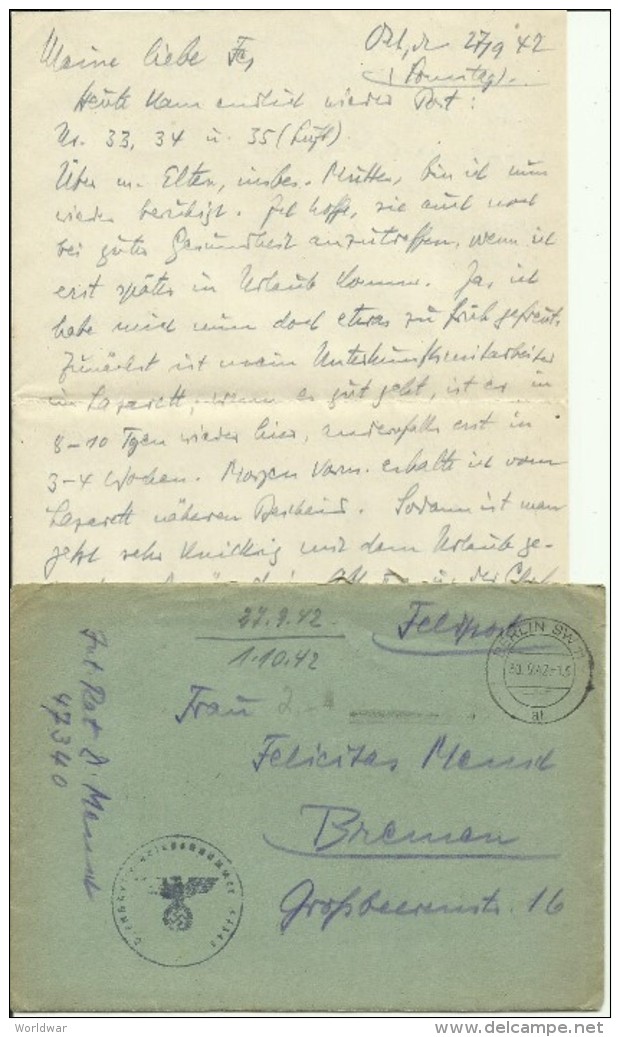 Meine liebe Fe,
27/9 42
(Sonntag).
Heute kam endlich wieder Post:
Nr. 33, 34 u. 35 (Luft).
Über m. Eltern, insbes. Mutter, bin ich nun
wieder beruhigt. Ich hoffe, sie auch noch
bei guter Gesundheit anzutreffen, wenn ich
erst später in Urlaub komme. Ja, ich
habe mich nun doch etwas zu früh gefreut.
Zunächst ist mein Unterkunftsmitarbeiter
im Lazarett, wenn es gut geht, ist er in
8-10 Tgen wieder hier, andernfalls erst in
3-4 Wochen. Morgen Vorm. erhalte ich vom
Lazarett näheren Bescheid. Sodann ist man
jetzt sehr knickrig mit dem Urlaub ge-
27.9.42
1.10.42
Feldpost
BERLIN SW 11
30.9.42
al
Frau
Felicitas
Bremen
Großbeerenstr. 16
47340
Worldwar